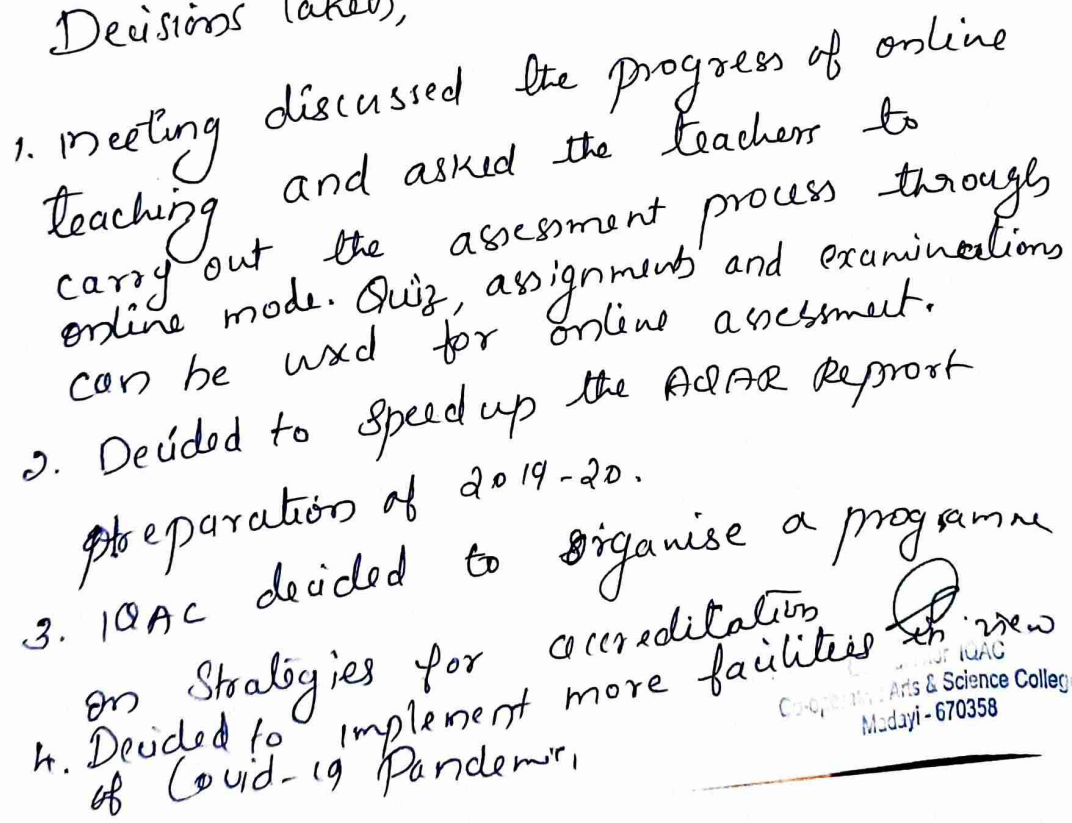 Decisions taken,
1. meeting discussed the progress of online
teaching and asked the teachers to
carry out the assessment process through
online mode. Quiz, assignments and examinations
can be used for online assessment.
2. Decided to speed up the AQAR Report
preparation of 2019-20.
3. IQAC decided to organise a programme
on Strategies for accreditation
4. Decided to implement more facilities in view
of Covid-19 Pandemic,
IQAC
Arts & Science College
Madayi - 670358